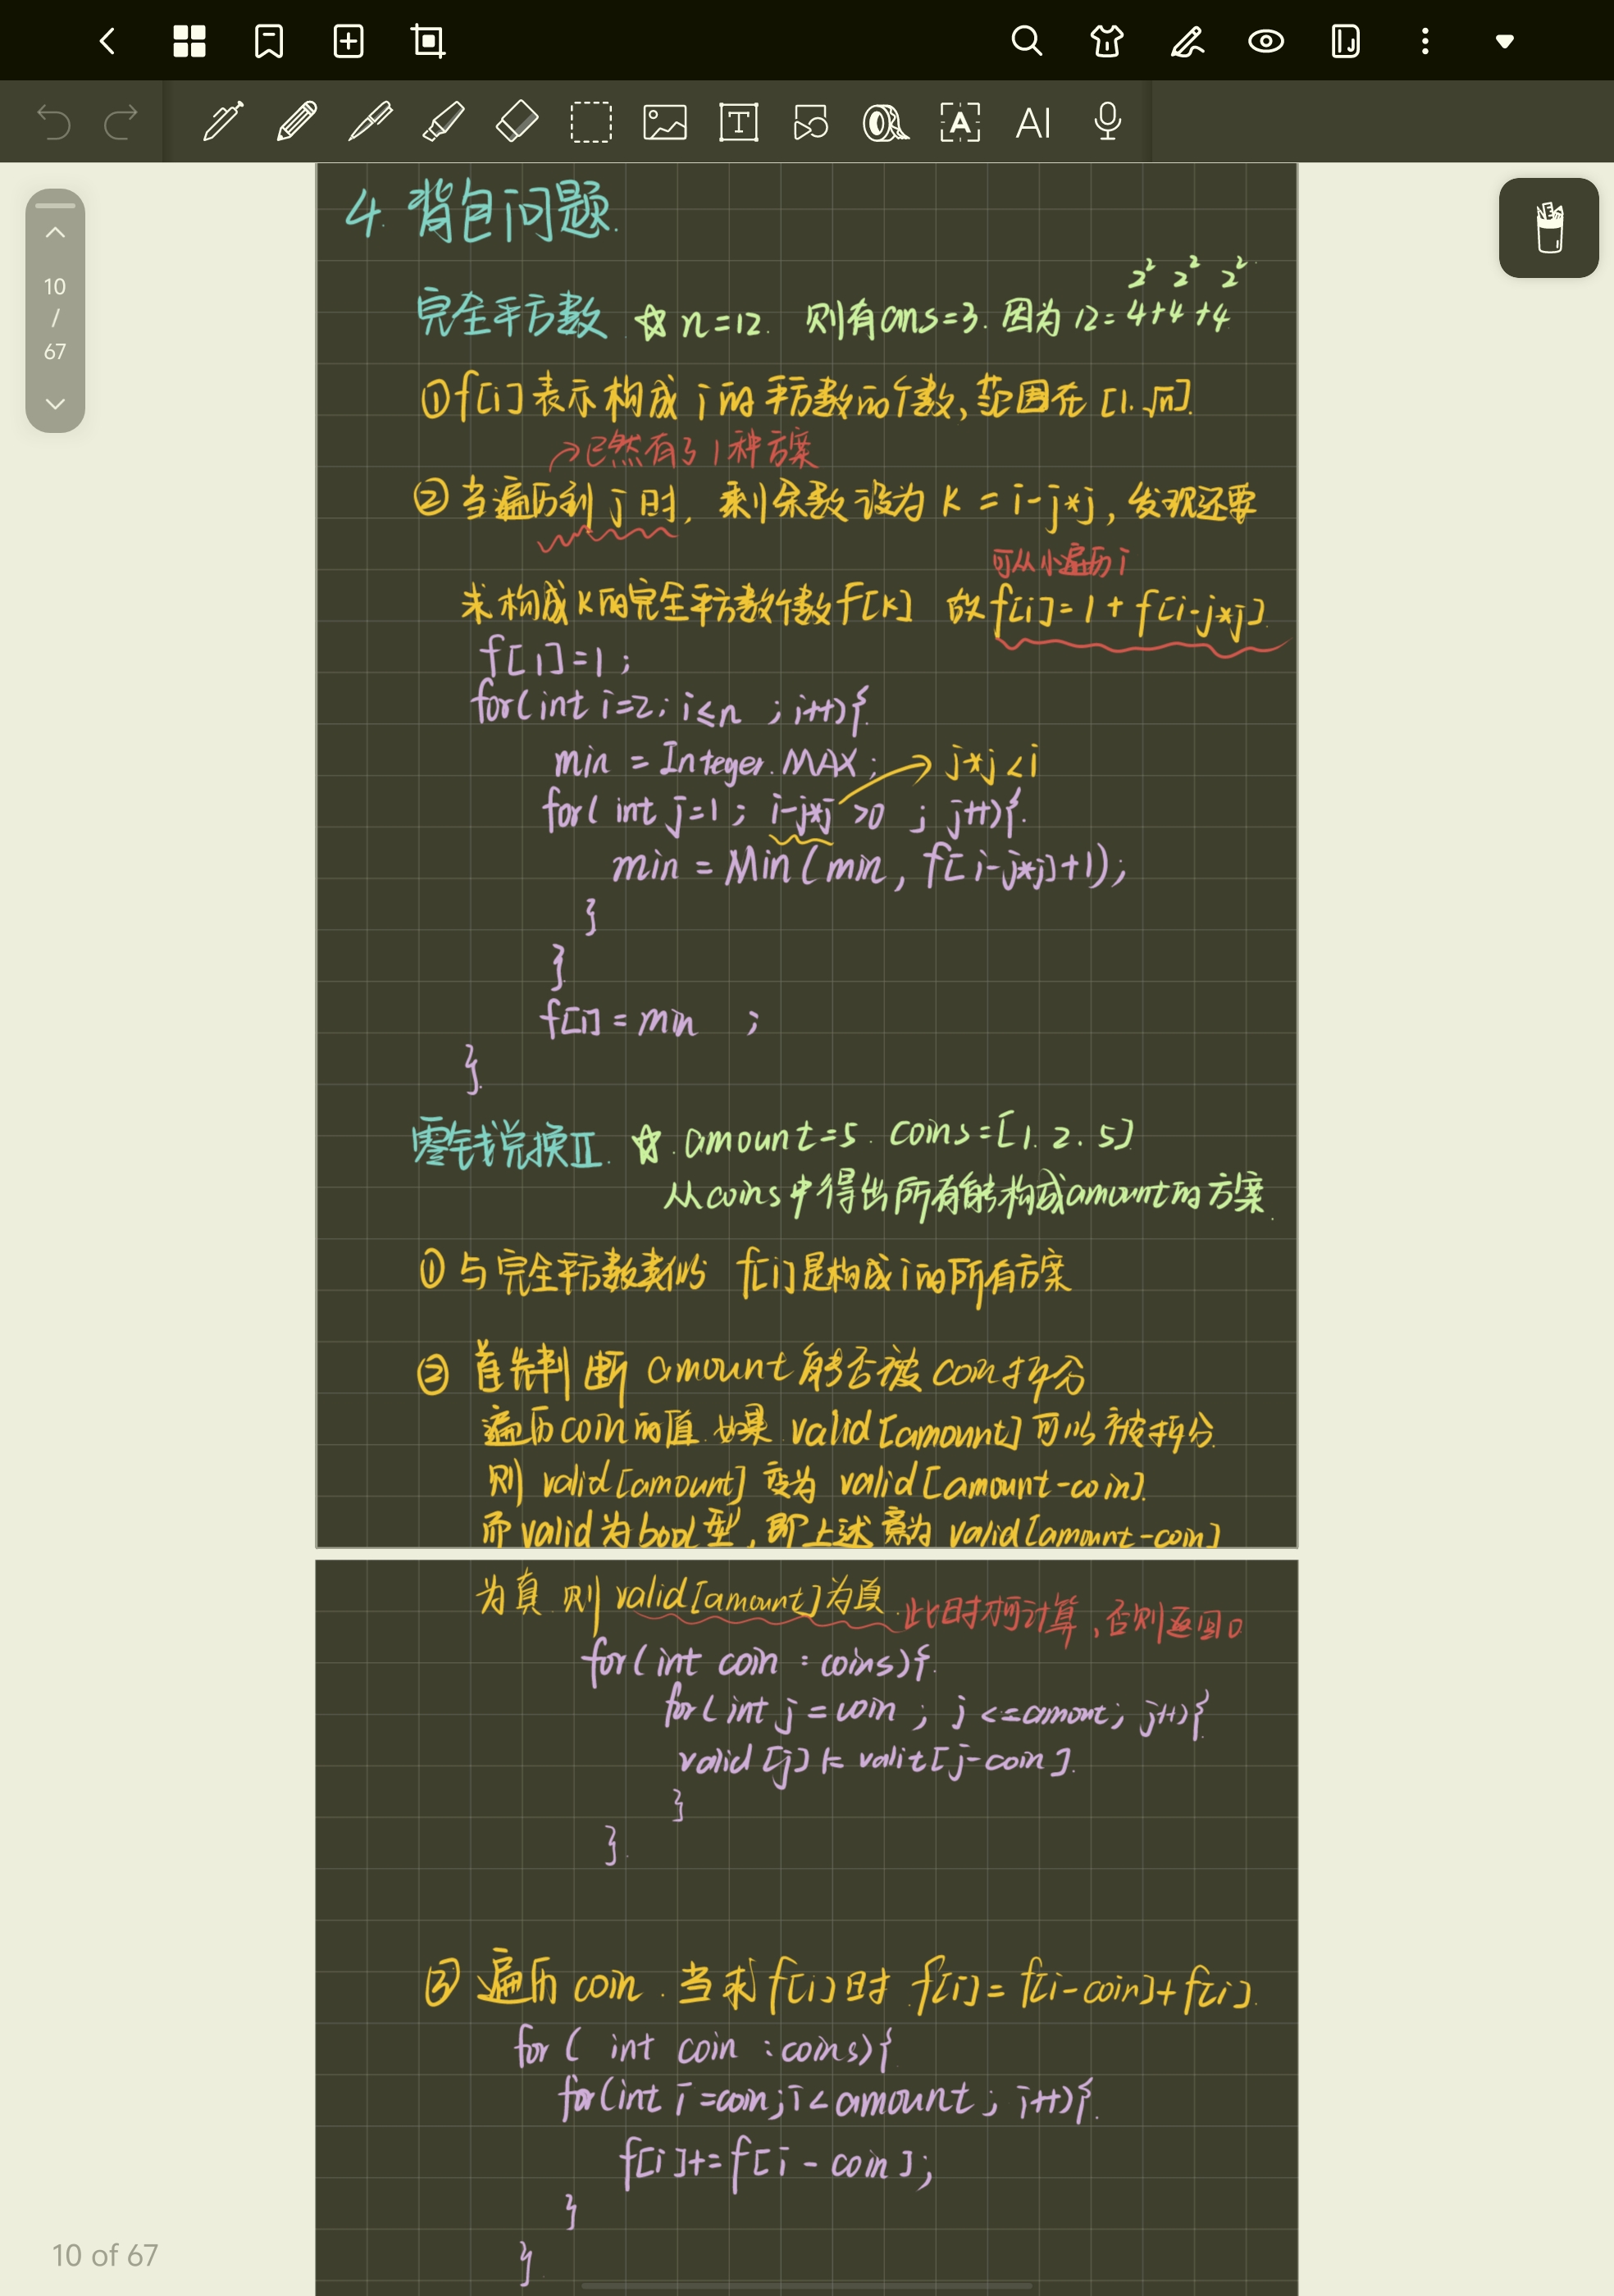 10
/
67
T
A
AI
4. 背包问题.
2² 2² 2²
完全平方数 ☆ n=12. 则有ans=3. 因为 12=4+4+4
①f[i]表示构成i的平方数的个数,范围在[1.√n].
→已然有了1种方案
②当遍历到j时, 剩余数设为 K = i-j*j, 发现还要
可从小遍历i
求构成K的完全平方数个数f[K] 故f[i]=1+f[i-j*j]
f[1]=1;
for(int i=2; i≤n ; i++){
min = Integer.MAX;
→ j*j<i
for( int j=1; i-j*j >0 ; j++){
min = Min(min, f[i-j*j]+1);
}
}
f[i] = min ;
}.
零钱兑换Ⅱ. ☆. amount=5. coins=[1. 2. 5]
从coins中得出所有能构成amount的方案.
①与完全平方数类似 f[i]是构成i的所有方案
② 首先判断 amount能否被coin拆分
遍历coin的值.如果 valid[amount]可以被拆分.
则 valid[amount] 变为 valid[amount-coin].
而valid为bool型,即上述意为 valid[amount-coin]
为真.则valid[amount]为真.此时才可计算,否则返回0
for(int coin : coins){.
for(int j=coin ; j <=amont; j++){
valid[j] |= valit[j-coin].
}
}.
③ 遍历 coin. 当求f[i]时.f[i]=f[i-coin]+f[i].
for ( int coin :coins){
for(int i=coin;i<amount; i++){.
f[i]+=f[i-coin];
}
}
10 of 67